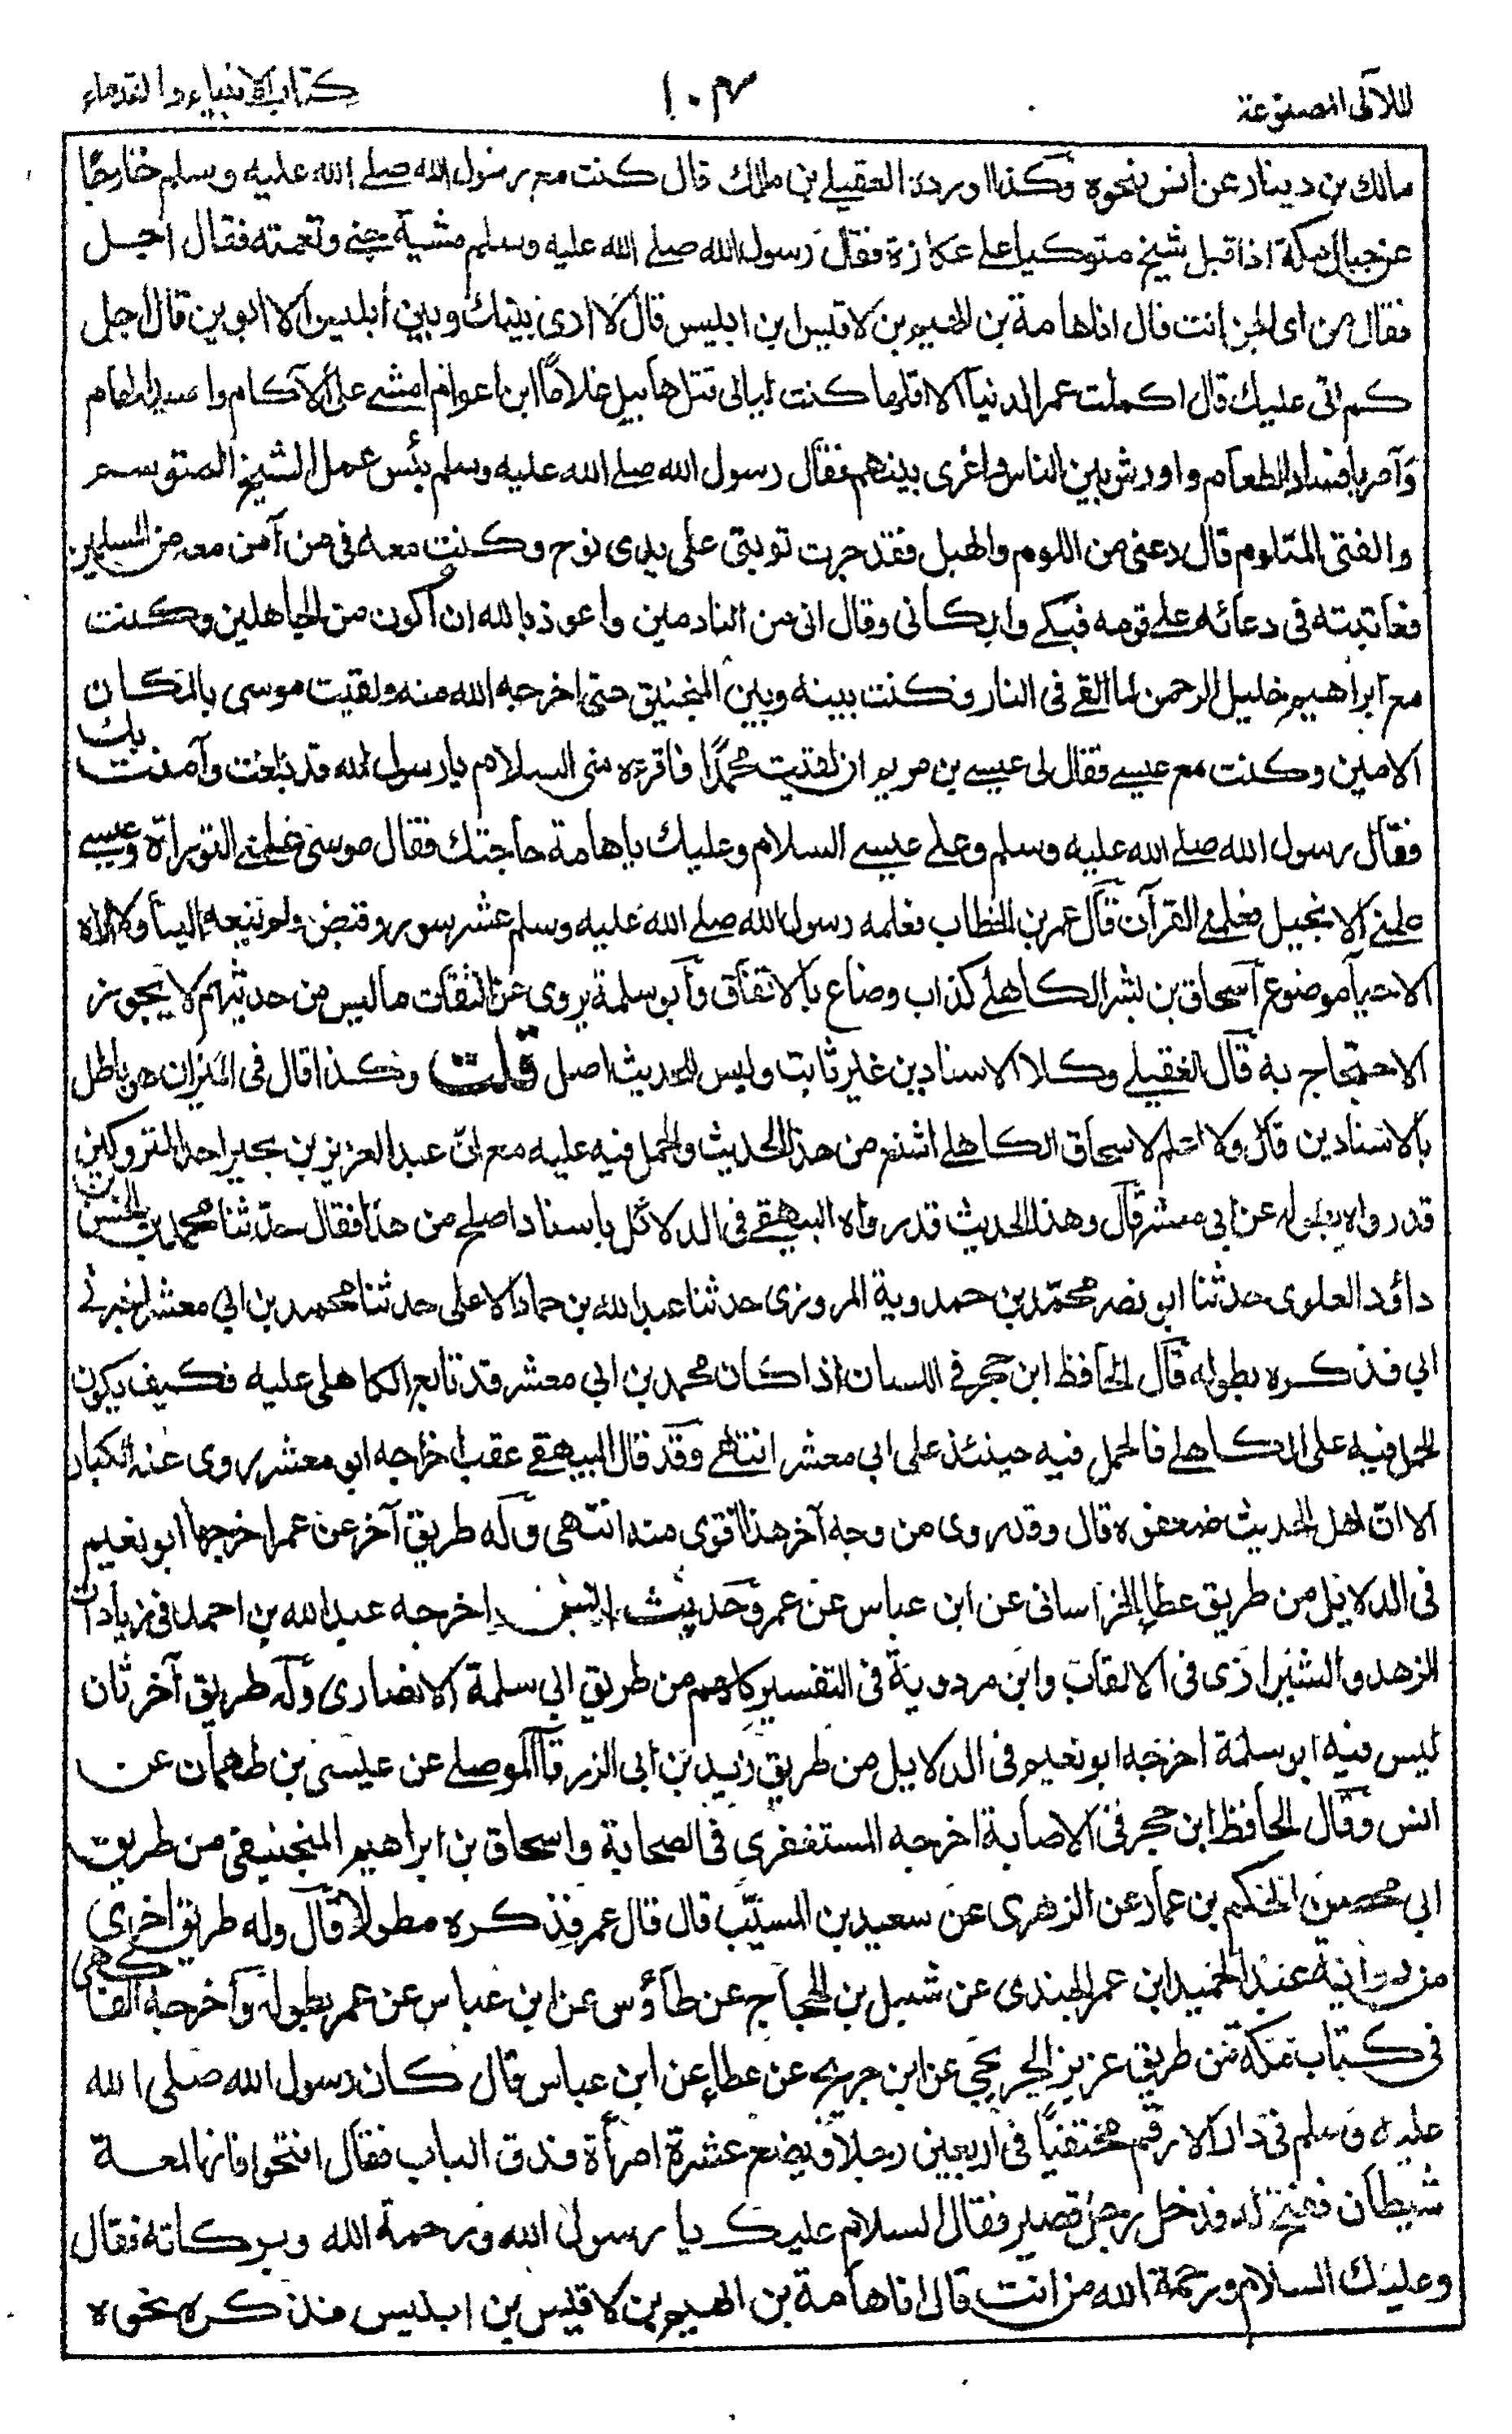 اللآلى المصنوعة
١٠٣
كتاب الانبياء والقدماء
مالك بن دينار عن انس بنحوه وكذا اورده العقيلے بن مالك قال كنت مع رسول الله صلے الله عليه وسلم خارجًا
عن جبال مكة اذا قبل شيخ متوكيا علے عكازة فقال رسول الله صلے الله عليه وسلم مشية جنے ونغمته فقال اجل
فقال من اى الجن انت قال انا هامة بن الهيم بن لاقيس ابن ابليس قال لا ارى بينك وبين ابليس الا ابوين قال اجل
كم اتى عليك قال اكملت عمر الدنيا الا اقلها كنت ليالى قتل هابيل غلامًا ابن اعوام امشے على الآكام واصيد الهام
وآمر بافساد الطعام واورش بين الناس واغرى بينهم فقال رسول الله صلے الله عليه وسلم بئس عمل الشيخ المتوسم
والفتى المتلوم قال دعنى من اللوم والهبل فقد جرت توبتى على يدى نوح وكنت معه فى من آمن معه من المسلمين
فعاتبته فى دعائه علے قومه فبكے وابكانى وقال انى من النادمين واعوذ بالله ان اكون من الجاهلين وكنت
مع ابراهيم خليل الرحمن لما القے فى النار وكنت بينه وبين المنجنيق حتى اخرجه الله منه ولقيت موسى بالمكان
الامين وكنت مع عيسے فقال لى عيسے بن مريم ان لقيت محمدًا فاقرءه منى السلام يا رسول الله قد بلغت وآمنت بك
فقال رسول الله صلے الله عليه وسلم وعلے عيسے السلام وعليك يا هامة حاجتك فقال موسى علمنے التوراة وعيسے
علمنے الانجيل فعلمنے القرآن قال عمر بن الخطاب فعلمه رسول الله صلے الله عليه وسلم عشر سور وقبض ولم ينعه الينا ولا اراه
الا حيا موضوع اسحاق بن بشر الكاهلے كذاب وضاع بالاتفاق وابو سلمة يروى عن الثقات ما ليس من حديثهم لا يجوز
الاحتجاج به قال العقيلے وكلا الاسنادين غير ثابت وليس للحديث اصل قلت وكذا قال فى الميزان هو باطل
بالاسنادين قال ولا اعلم لاسحاق الكاهلے اشنع من هذا الحديث والحمل فيه عليه مع ان عبد العزيز بن بحير احد المتروكين
قد رواه بطوله عن ابى معشر قال وهذا الحديث قد رواه البيهقے فى الدلائل باسناد اصلح من هذا فقال حدثنا محمد بن الحسن بن
داؤد العلوى حدثنا ابو نصر محمد بن حمدوية المروزى حدثنا عبد الله بن حماد الاعلى حدثنا محمد بن ابى معشر اخبرنے
ابى فذكره بطوله قال الحافظ ابن حجر فے اللسان اذا كان محمد بن ابى معشر قد تابع الكاهلى عليه فكيف يكون
الحمل فيه على الكاهلے فالحمل فيه حينئذ على ابى معشر انتهے وقد قال البيهقے عقب اخراجه ابو معشر روى عنه الكبار
الا ان اهل الحديث ضعفوه قال وقد روى من وجه آخر هذا اقوى منه انتهى وله طريق آخر عن عمر اخرجها ابو نعيم
فى الدلايل من طريق عطاء الخراسانى عن ابن عباس عن عمر وحديث انس اخرجه عبد الله بن احمد فى زيادات
الزهد والشيرازى فى الالقاب وابن مردوية فى التفسير كلهم من طريق ابى سلمة الانصارى وله طريق آخر ثان
ليس فيه ابو سلمة اخرجه ابو نعيم فى الدلايل من طريق زيد بن ابى الزرقا الموصلے عن عيسى بن طهمان عن
انس وقال الحافظ ابن حجر فى الاصابة اخرجه المستغفرى فى الصحابة واسحاق بن ابراهيم المنجنيقى من طريق
ابى محصن الحكم بن عمار عن الزهرى عن سعيد بن المسيّب قال قال عمر فذكره مطولا قال وله طريق اخرى
من رواية عبد الحميد ابن عمر الجندى عن شبل بن الحجاج عن طاؤس عن ابن عباس عن عمر بطوله واخرجه الفاكهى
فى كتاب مكة من طريق عزيز الجريجى عن ابن جريج عن عطاء عن ابن عباس قال كان رسول الله صلى الله
عليه وسلم فى دار الارقم مختفيًا فى اربعين رجلا وبضع عشرة امرأة فدق الباب فقال افتحوا فانها لمعة
شيطان ففتح له فدخل رجل قصير فقال السلام عليك يا رسول الله ورحمة الله وبركاته فقال
وعليك السلام ورحمة الله من انت قال انا هامة بن الهيم بن لاقيس بن ابليس فذكره نحوه